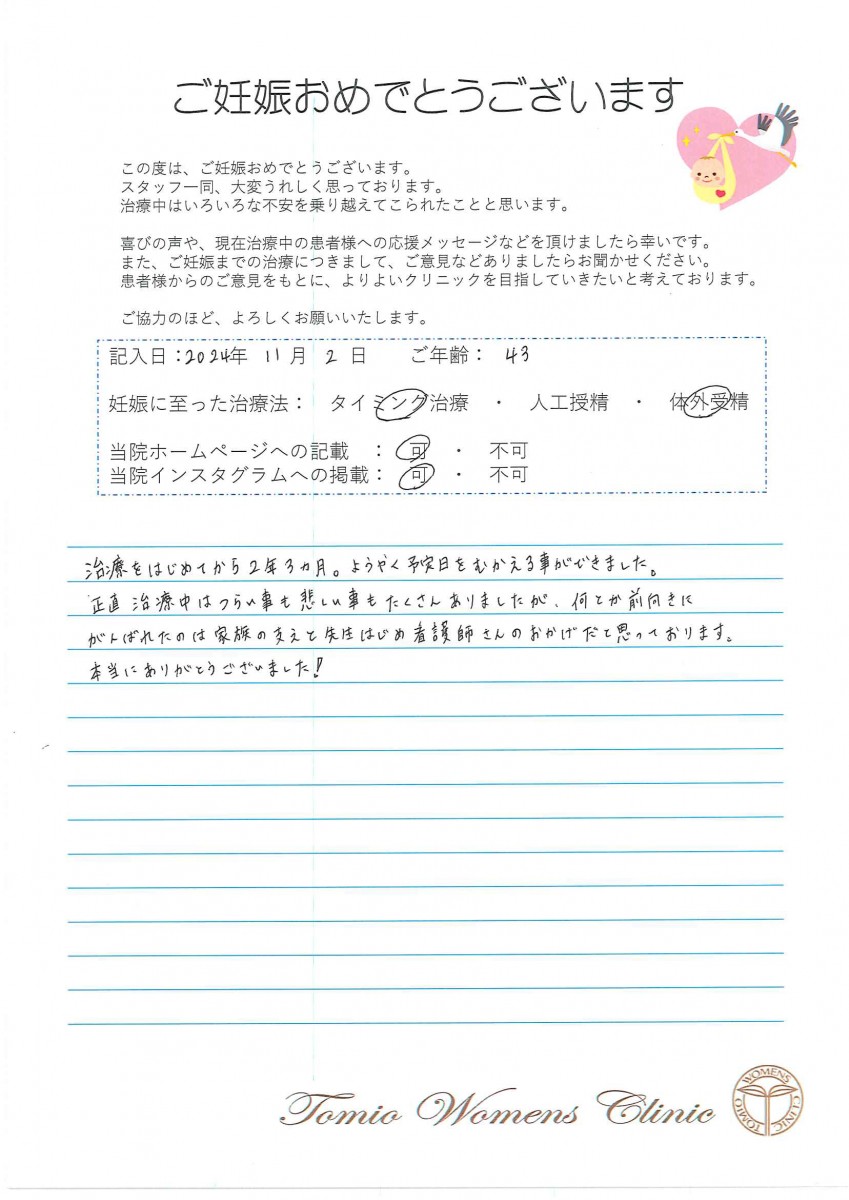 ご妊娠おめでとうございます
この度は、ご妊娠おめでとうございます。
スタッフ一同、大変うれしく思っております。
治療中はいろいろな不安を乗り越えてこられたことと思います。
喜びの声や、現在治療中の患者様への応援メッセージなどを頂けましたら幸いです。
また、ご妊娠までの治療につきまして、ご意見などありましたらお聞かせください。
患者様からのご意見をもとに、よりよいクリニックを目指していきたいと考えております。
ご協力のほど、よろしくお願いいたします。
記入日：2024年 11月 2日 ご年齢： 43
妊娠に至った治療法： タイミング治療 ・ 人工授精 ・ 体外受精
当院ホームページへの記載 ： 可 ・ 不可
当院インスタグラムへの掲載： 可 ・ 不可
治療をはじめてから2年3ヵ月。ようやく予定日をむかえる事ができました。
正直 治療中はつらい事も悲しい事もたくさんありましたが、何とか前向きに
がんばれたのは家族の支えと先生はじめ看護師さんのおかげだと思っております。
本当にありがとうございました!
Tomio Womens Clinic
TOMIO WOMENS CLINIC